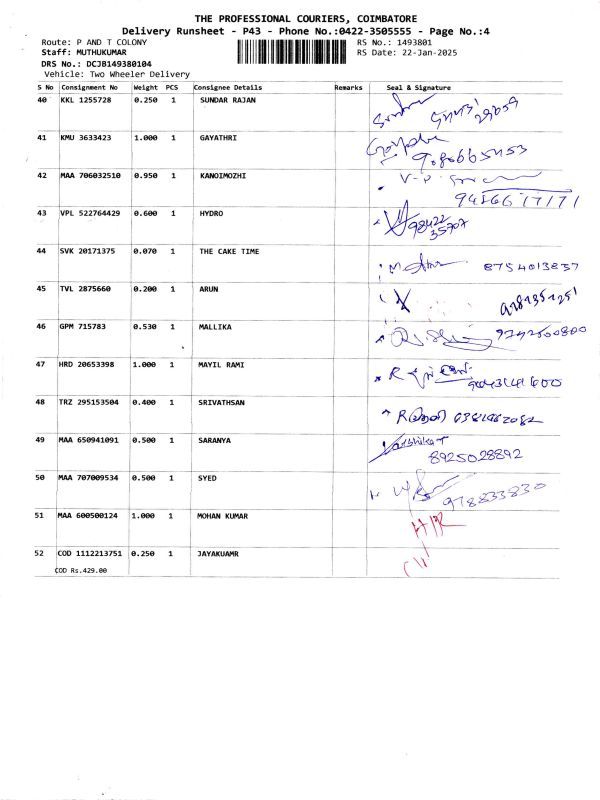 THE PROFESSIONAL COURIERS, COIMBATORE
Delivery Runsheet - P43 - Phone No.:0422-3505555 - Page No.:4
Route: P AND T COLONY RS No.: 1493801
Staff: MUTHUKUMAR RS Date: 22-Jan-2025
DRS No.: DCJB149380104
Vehicle: Two Wheeler Delivery
S No Consignment No Weight PCS Consignee Details Remarks Seal & Signature
40 KKL 1255728 0.250 1 SUNDAR RAJAN
41 KMU 3633423 1.000 1 GAYATHRI
42 MAA 706032510 0.950 1 KANOIMOZHI
43 VPL 522764429 0.600 1 HYDRO 98422
35707
44 SVK 20171375 0.070 1 THE CAKE TIME 8754013837
45 TVL 2875660 0.200 1 ARUN
46 GPM 715783 0.530 1 MALLIKA
47 HRD 20653398 1.000 1 MAYIL RAMI
48 TRZ 295153504 0.400 1 SRIVATHSAN
49 MAA 650941091 0.500 1 SARANYA
8925028892
50 MAA 707009534 0.500 1 SYED 978833830
51 MAA 600500124 1.000 1 MOHAN KUMAR
52 COD 1112213751 0.250 1 JAYAKUAMR
COD Rs.429.00